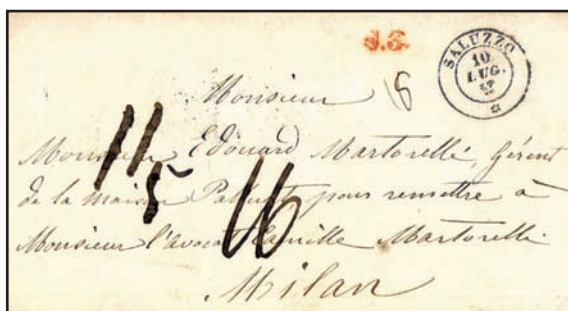 J.S.
SALUZZO
10
LUG.
47
Monsieur
16
11
5
16
Monsieur Edouard Martorelli, Gérent
de la maison pour remettre à
Monsieur l'avocat Camille Martorelli
Milan